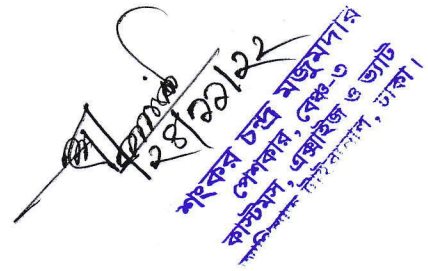 ২৪/১১/২২
শংকর চন্দ্র মজুমদার
পেশকার, বেঞ্চ-৩
কাস্টমস, এক্সাইজ ও ভ্যাট
ট্রাইব্যুনাল, ঢাকা।